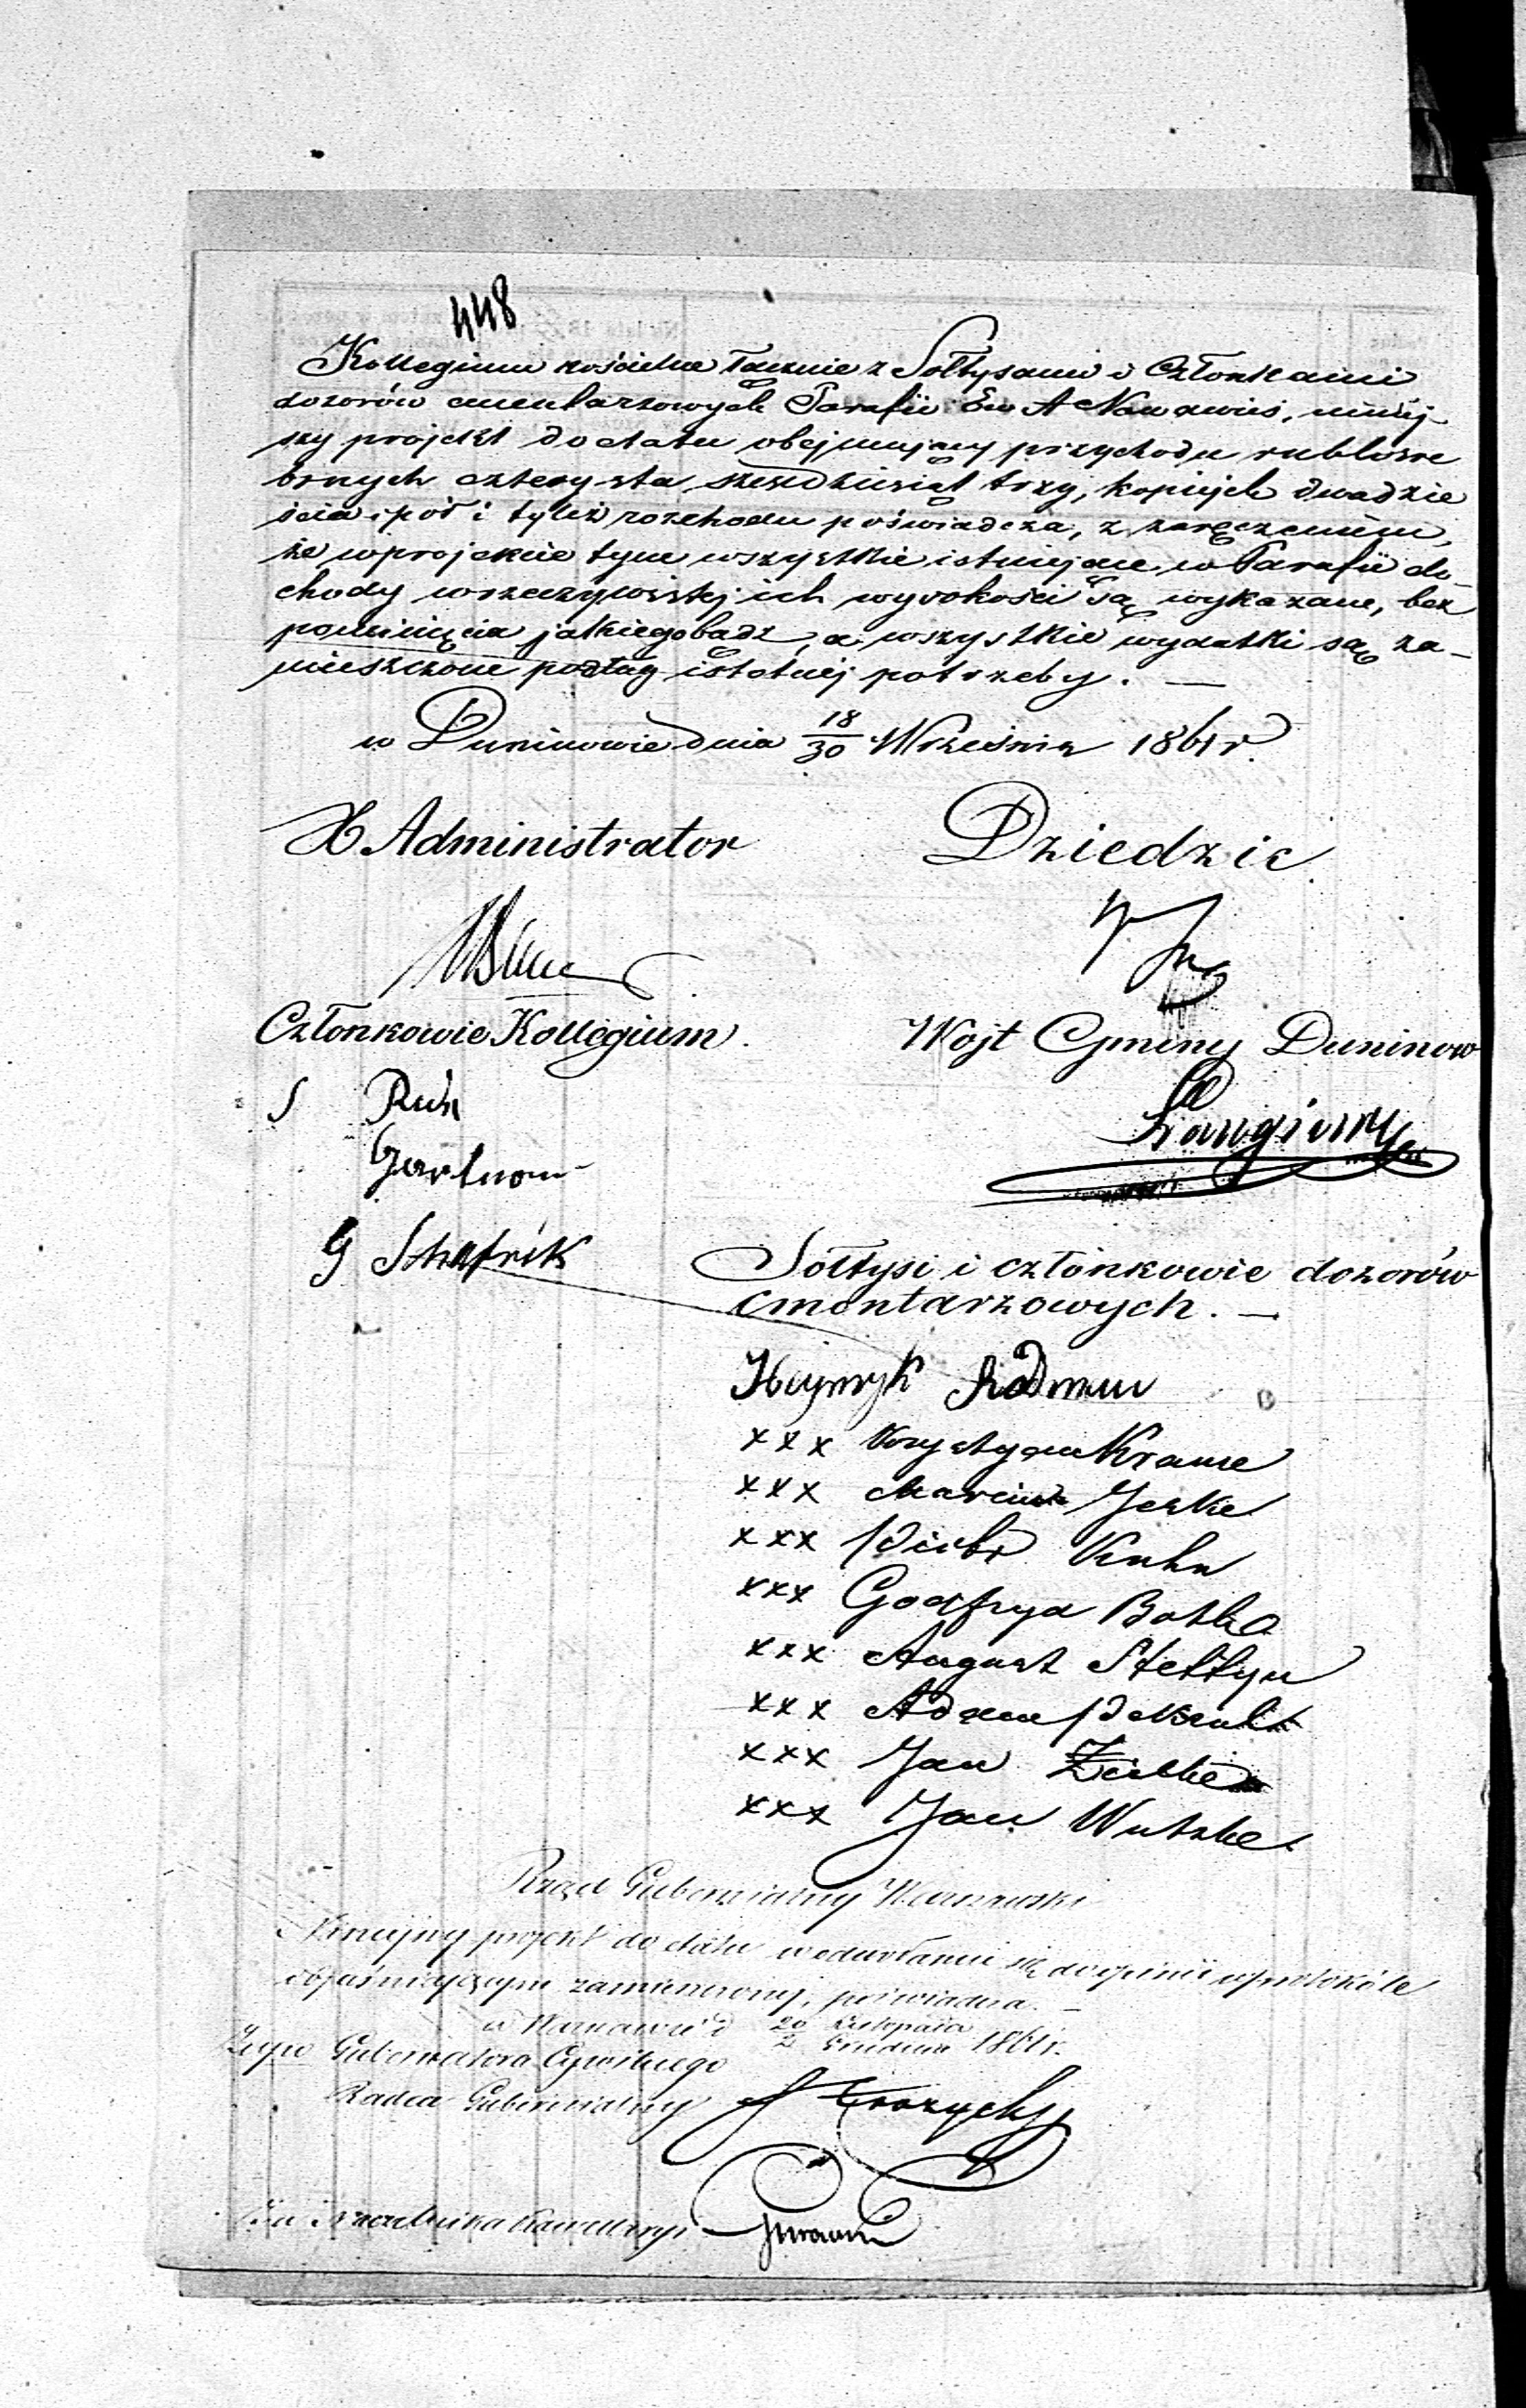 448
Kollegium kościelne łącznie z Sołtysami i Członkami
dozorów cmentarzowych Parafii Ew A Nowawieś, niniej
szy projekt do etatu obejmujący przychodu rublisre
brnych czterysta sześdziesiąt trzy, kopiejek dwadzie
ścia i pół i tyleż rozchodu poświadcza, z zaręczeniem,
że w projekcie tym wszystkie istniejące w Parafii do-
chody w rzeczywistej ich wysokości są wykazane, bez
pominięcia jakiegobądź, a wszystkie wydatki są za-
mieszczone podług istotnej potrzeby. —
w Duninowie dnia 18/30 Września 1861 r.
X Administrator
Dziedzic
Członkowie Kollegium.
Wojt Gminy Duninow
G
Sołtysi i członkowie dozorów
cmentarzowych. —
Heynryk
xxx Krystyan Krause
xxx Marcin Jeske
xxx Piotr Kuhn
xxx Godfryd
xxx August Stettyn
xxx Adam
xxx Jan
xxx Jan Wutzke
Rząd Gubernialny Warszawski
Niniejszy projekt do etatu w odwołaniu się do opinii w protokóle
objaśniającym zamieszczonej, poświadcza. —
w Warszawie d 20/2 Listopada/Grudnia 1861 r.
Gubernatora Cywilnego
Radca Gubernialny
Za Naczelnika Kancellaryi